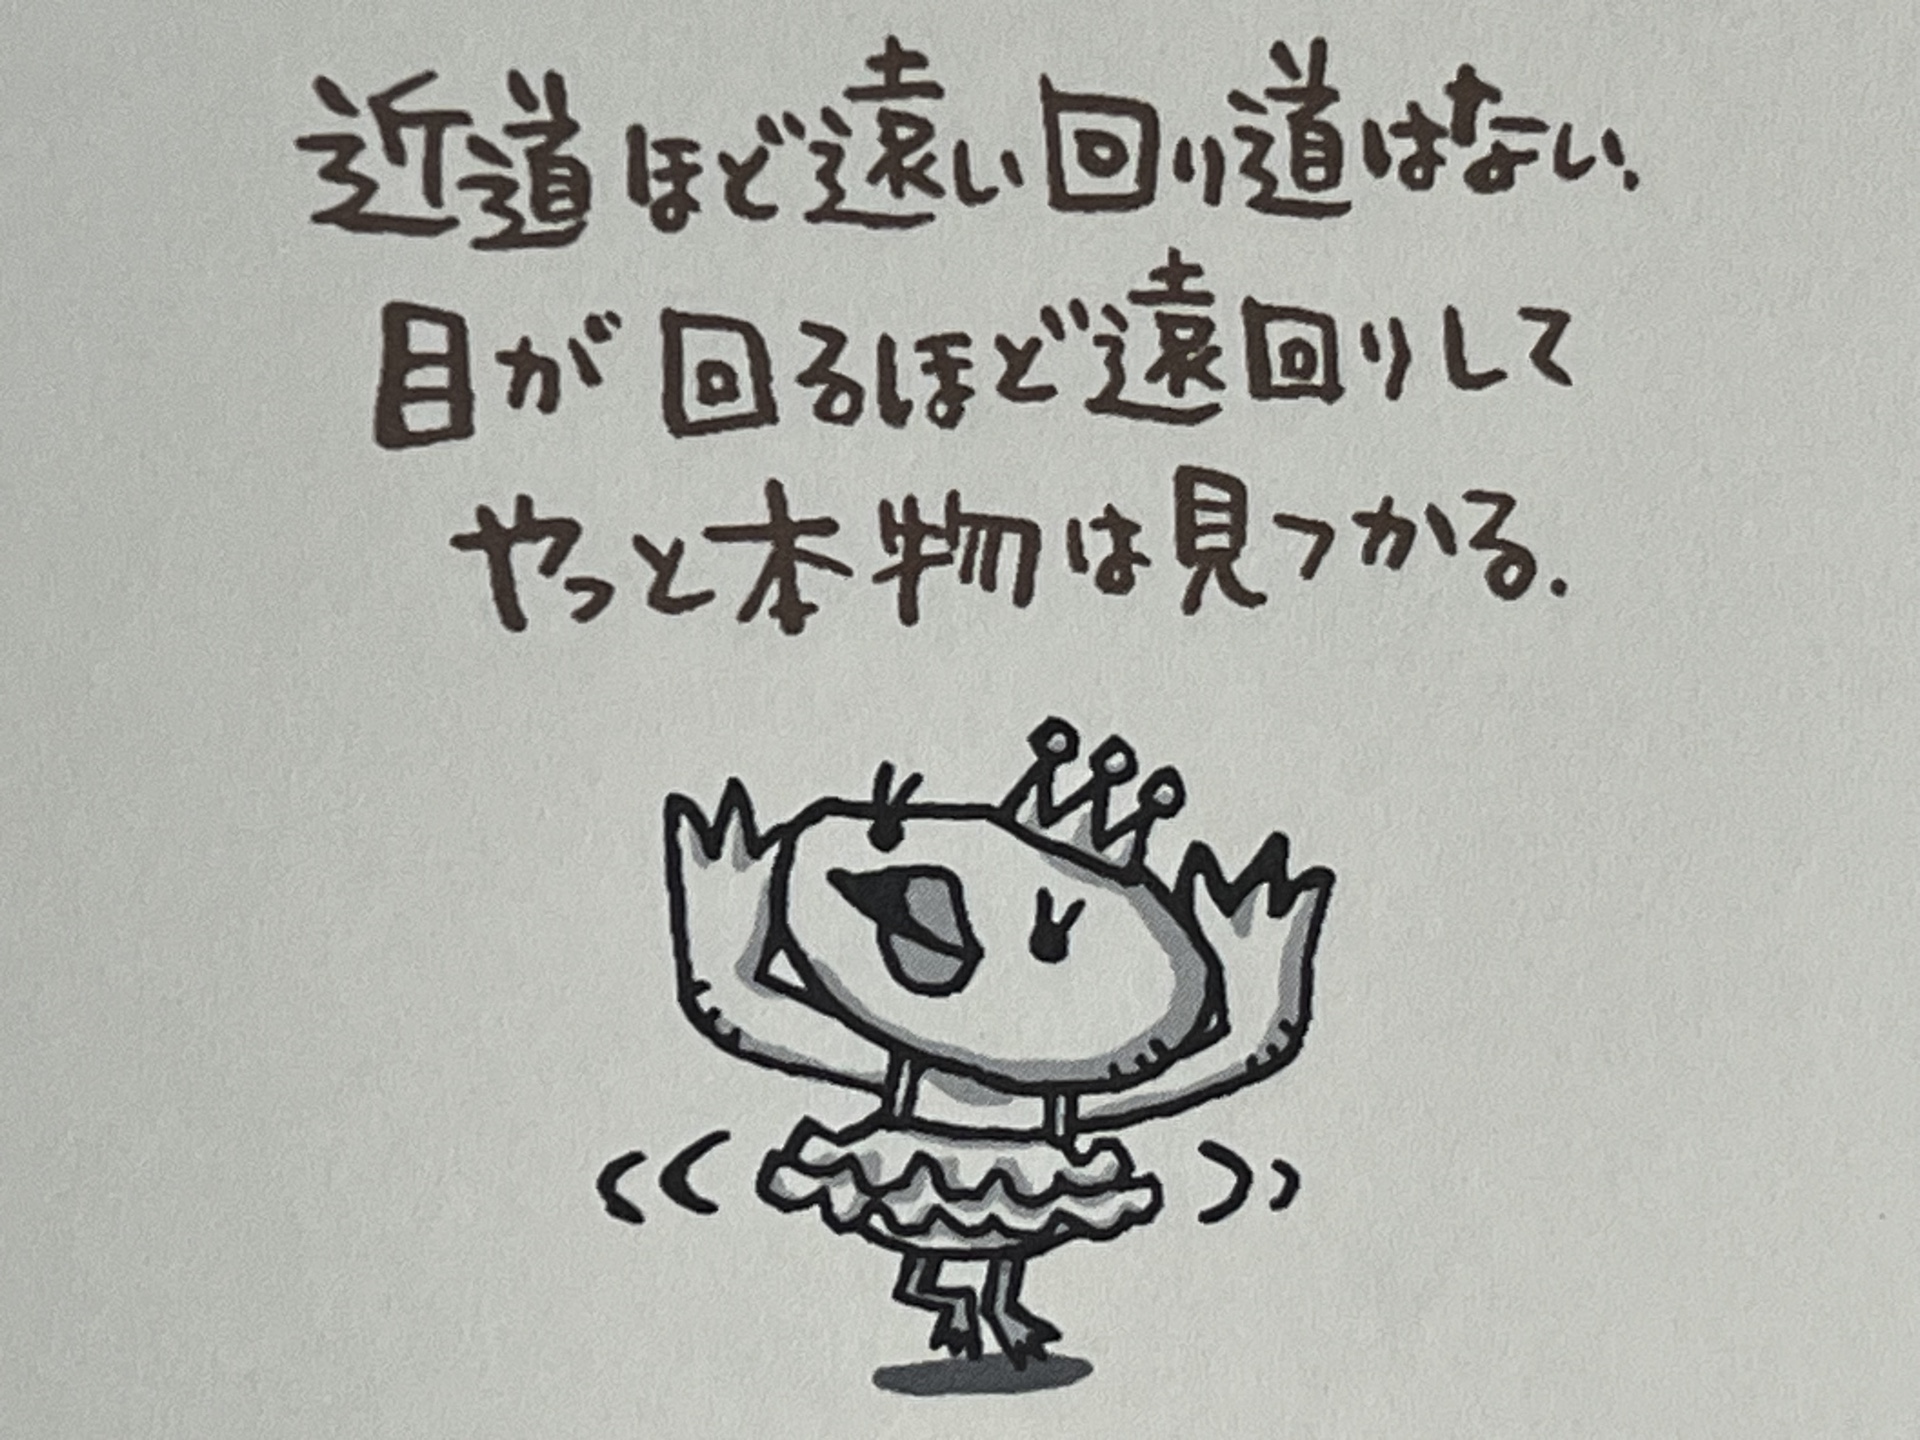 近道ほど遠い回り道はない.
目が回るほど遠回りして
やっと本物は見つかる.